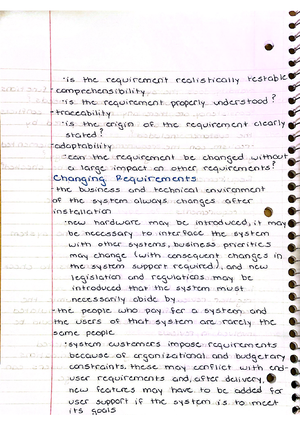 ·is the requirement realistically testable
-comprehensibility
·is the requirement properly understood?
-traceability
·is the origin of the requirement clearly
stated?
-adaptability
·can the requirement be changed without
a large impact on other requirements?
Changing Requirements
-the business and technical environment
of the system always changes after
installation
·new hardware may be introduced, it may
be necessary to interface the system
with other systems, business priorities
may change (with consequent changes in
the system support required), and new
legislation and regulations may be
introduced that the system must
necessarily abide by
-the people who pay for a system and
the users of that system are rarely the
same people
·system customers impose requirements
because of organizational and budgetary
constraints. these may conflict with end-
user requirements and, after delivery,
new features may have to be added for
user support if the system is to meet
its goals